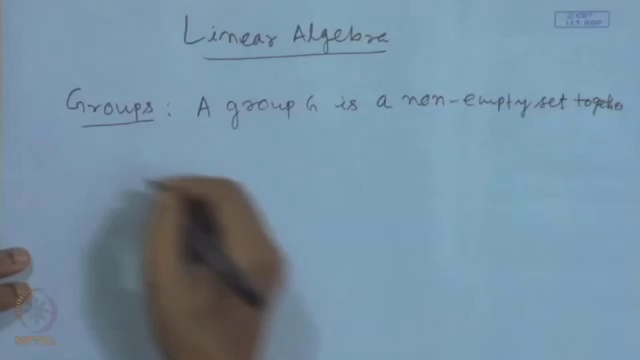 Linear Algebra
Groups : A group G is a non-empty set togethe
NPTEL